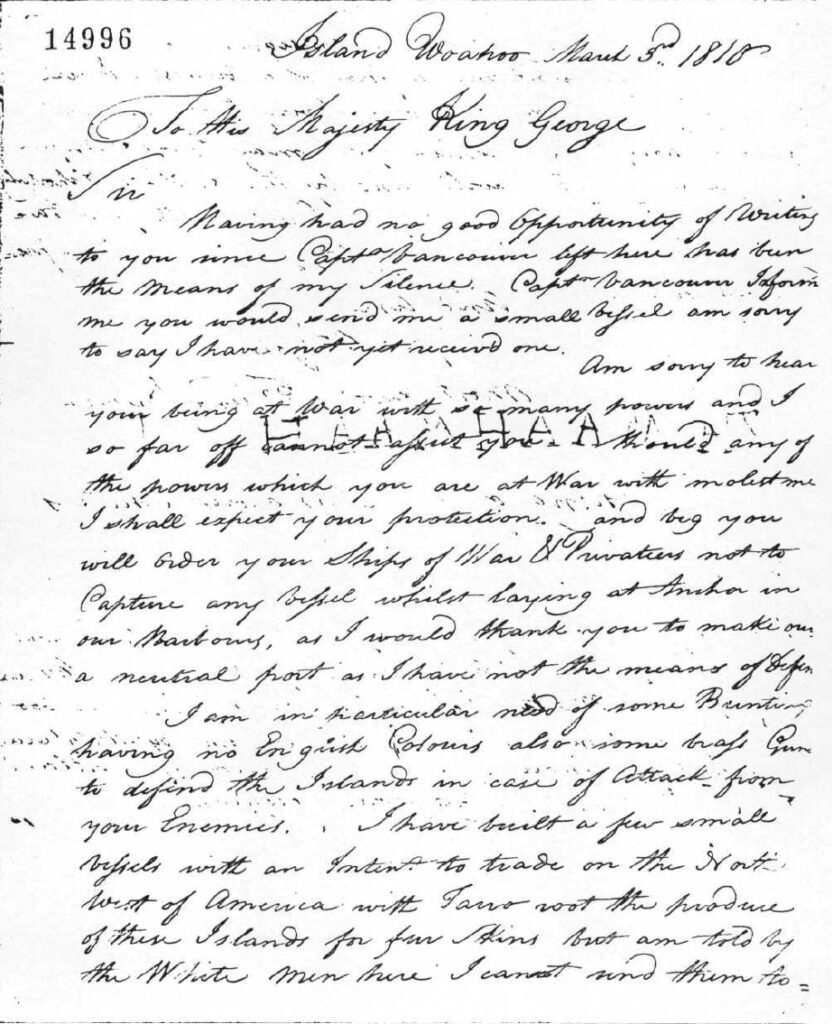 14996
Island Woahoo March 3rd. 1810
To His Majesty King George
Sir
Having had no good Opportunity of Writing
to you since Captn. Vancouver left here has been
the means of my Silence. Captn. Vancouver Inform
me you would send me a small Vessel am sorry
to say I have not yet receivd one.
Am sorry to hear
your being at War with so many powers and I
so far off cannot assist you. Should any of
the powers which you are at War with molest me
I shall expect your protection. and beg you
will Order your Ships of War & Privatiers not to
Capture any Vessel whilst laying at Anchor in
our Harbours, as I would thank you to make our
a neutral port as I have not the means of Defen
I am in particular need of some Bunting
having no English Colours also some brass Guns
to defend the Islands in case of Attack from
your Enemies. I have built a few small
Vessels with an Intent. to trade on the North
West of America with Tarro root the produce
of these Islands for fur Skins but am told by
the White men here I cannot send them to=